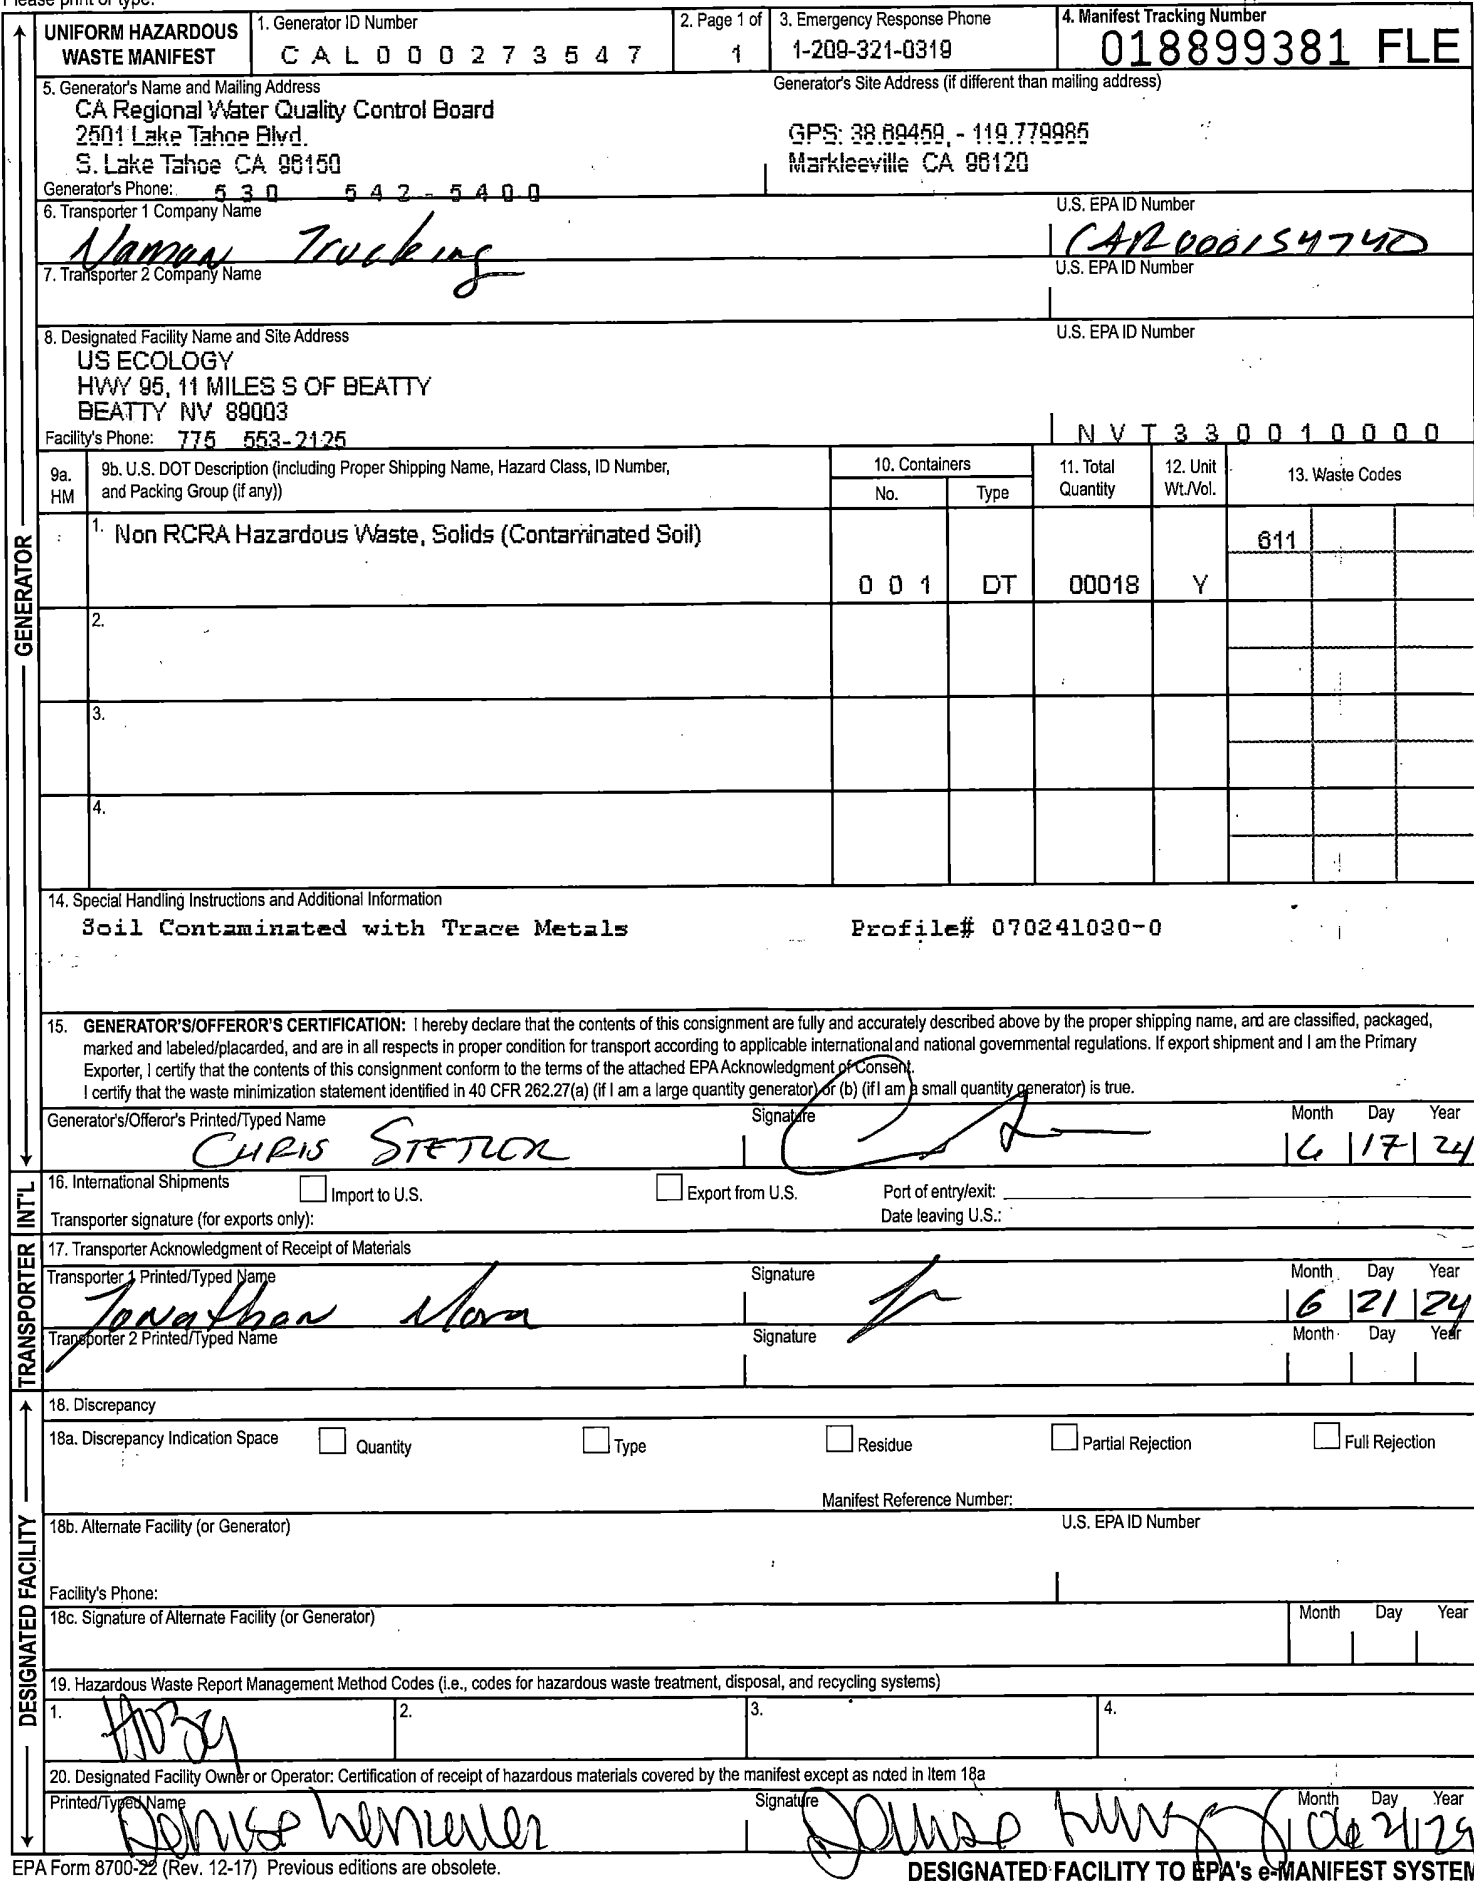 Please print or type.
UNIFORM HAZARDOUS WASTE MANIFEST
1. Generator ID Number
C A L 0 0 0 2 7 3 5 4 7
2. Page 1 of
1
3. Emergency Response Phone
1-209-321-0319
4. Manifest Tracking Number
018899381 FLE
5. Generator's Name and Mailing Address
CA Regional Water Quality Control Board
2501 Lake Tahoe Blvd.
S. Lake Tahoe CA 96150
Generator's Phone: 530 542-5400
Generator's Site Address (if different than mailing address)
GPS: 38.69459, - 119.779985
Markleeville CA 96120
6. Transporter 1 Company Name
Naman Trucking
U.S. EPA ID Number
CAR000154740
7. Transporter 2 Company Name
U.S. EPA ID Number
8. Designated Facility Name and Site Address
US ECOLOGY
HWY 95, 11 MILES S OF BEATTY
BEATTY NV 89003
Facility's Phone: 775 553-2125
U.S. EPA ID Number
N V T 3 3 0 0 1 0 0 0 0
9a. HM
9b. U.S. DOT Description (including Proper Shipping Name, Hazard Class, ID Number,
and Packing Group (if any))
10. Containers
No.
Type
11. Total Quantity
12. Unit Wt./Vol.
13. Waste Codes
1. Non RCRA Hazardous Waste, Solids (Contaminated Soil)
0 0 1
DT
00018
Y
611
2.
3.
4.
14. Special Handling Instructions and Additional Information
Soil Contaminated with Trace Metals Profile# 070241030-0
15. GENERATOR'S/OFFEROR'S CERTIFICATION: I hereby declare that the contents of this consignment are fully and accurately described above by the proper shipping name, and are classified, packaged,
marked and labeled/placarded, and are in all respects in proper condition for transport according to applicable international and national governmental regulations. If export shipment and I am the Primary
Exporter, I certify that the contents of this consignment conform to the terms of the attached EPA Acknowledgment of Consent.
I certify that the waste minimization statement identified in 40 CFR 262.27(a) (if I am a large quantity generator) or (b) (if I am a small quantity generator) is true.
Generator's/Offeror's Printed/Typed Name
CHRIS STETLER
Signature
Month Day Year
6 17 24
16. International Shipments
Import to U.S.
Export from U.S.
Port of entry/exit:
Transporter signature (for exports only):
Date leaving U.S.:
17. Transporter Acknowledgment of Receipt of Materials
Transporter 1 Printed/Typed Name
Jonathan Mora
Signature
Month Day Year
6 21 24
Transporter 2 Printed/Typed Name
Signature
Month Day Year
18. Discrepancy
18a. Discrepancy Indication Space
Quantity
Type
Residue
Partial Rejection
Full Rejection
Manifest Reference Number:
18b. Alternate Facility (or Generator)
U.S. EPA ID Number
Facility's Phone:
18c. Signature of Alternate Facility (or Generator)
Month Day Year
19. Hazardous Waste Report Management Method Codes (i.e., codes for hazardous waste treatment, disposal, and recycling systems)
1.
2.
3.
4.
20. Designated Facility Owner or Operator: Certification of receipt of hazardous materials covered by the manifest except as noted in Item 18a
Printed/Typed Name
Denise
Signature
Month Day Year
GENERATOR
INT'L
TRANSPORTER
DESIGNATED FACILITY
EPA Form 8700-22 (Rev. 12-17) Previous editions are obsolete.
DESIGNATED FACILITY TO EPA's e-MANIFEST SYSTEM